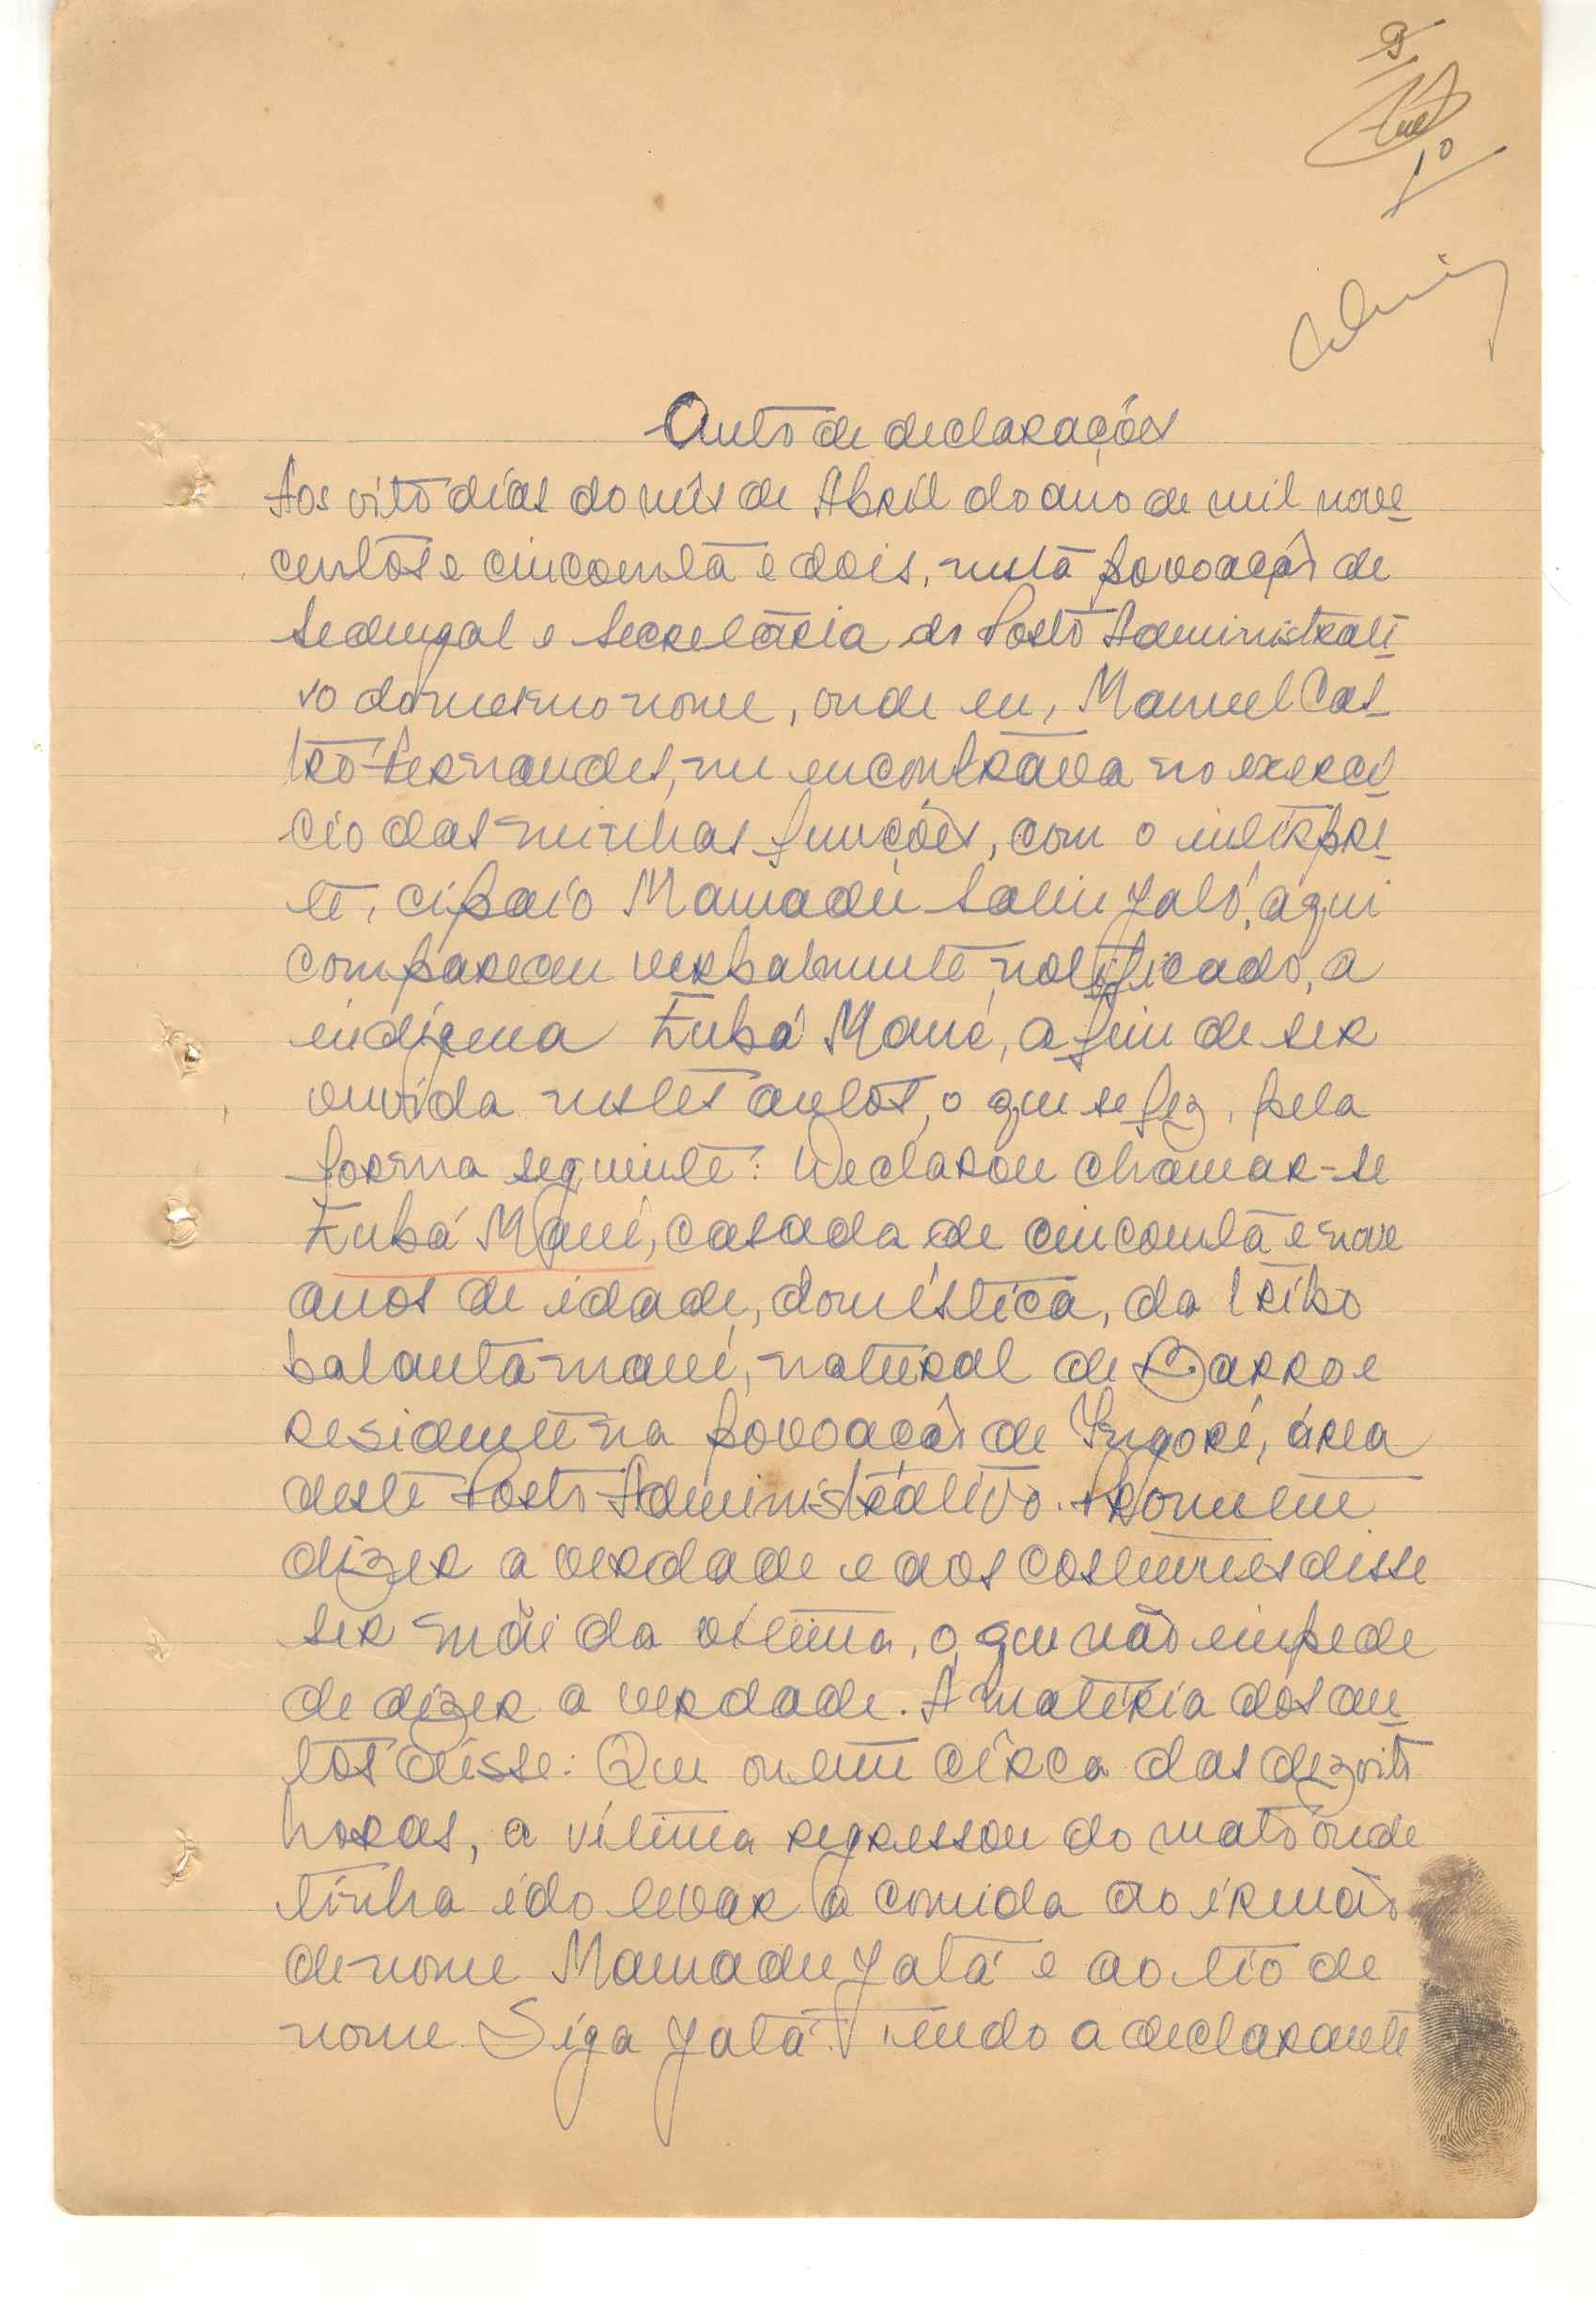 Auto de declarações
Aos oito dias do mês de Abril do ano de mil nove
centos e cincoenta e dois, nesta povoação de
Sedengal e Secretária do Posto Administrati
vo do mesmo nome, onde eu, Manuel Cas
tro Fernandes, me encontrava no exercí
cio das minhas funções, com o interpre
te, cipaio Mamadú Saliu Jaló, aqui
compareceu verbalmente notificado, a
indígena Tubá Mané, a fim de ser
ouvida nestes autos, o que se fez, pela
forma seguinte: Declarou chamar-se
Tubá Mané, casada de cincoenta e nove
anos de idade, doméstica, da tribo
balanta mané, natural de Barro e
residente na povoação de Ingoré, área
deste Posto Administrativo. Prometeu
dizer a verdade e aos costumes disse
ser mãe da vítima, o que não impede
de dizer a verdade. A matéria dos au
tos disse: Que ontem cêrca das dezoito
horas, a vítima regressou do mato onde
tinha ido levar a comida ao irmão
de nome Mamadu Jatá e ao tio de
nome Siga Jatá. Tendo a declarante